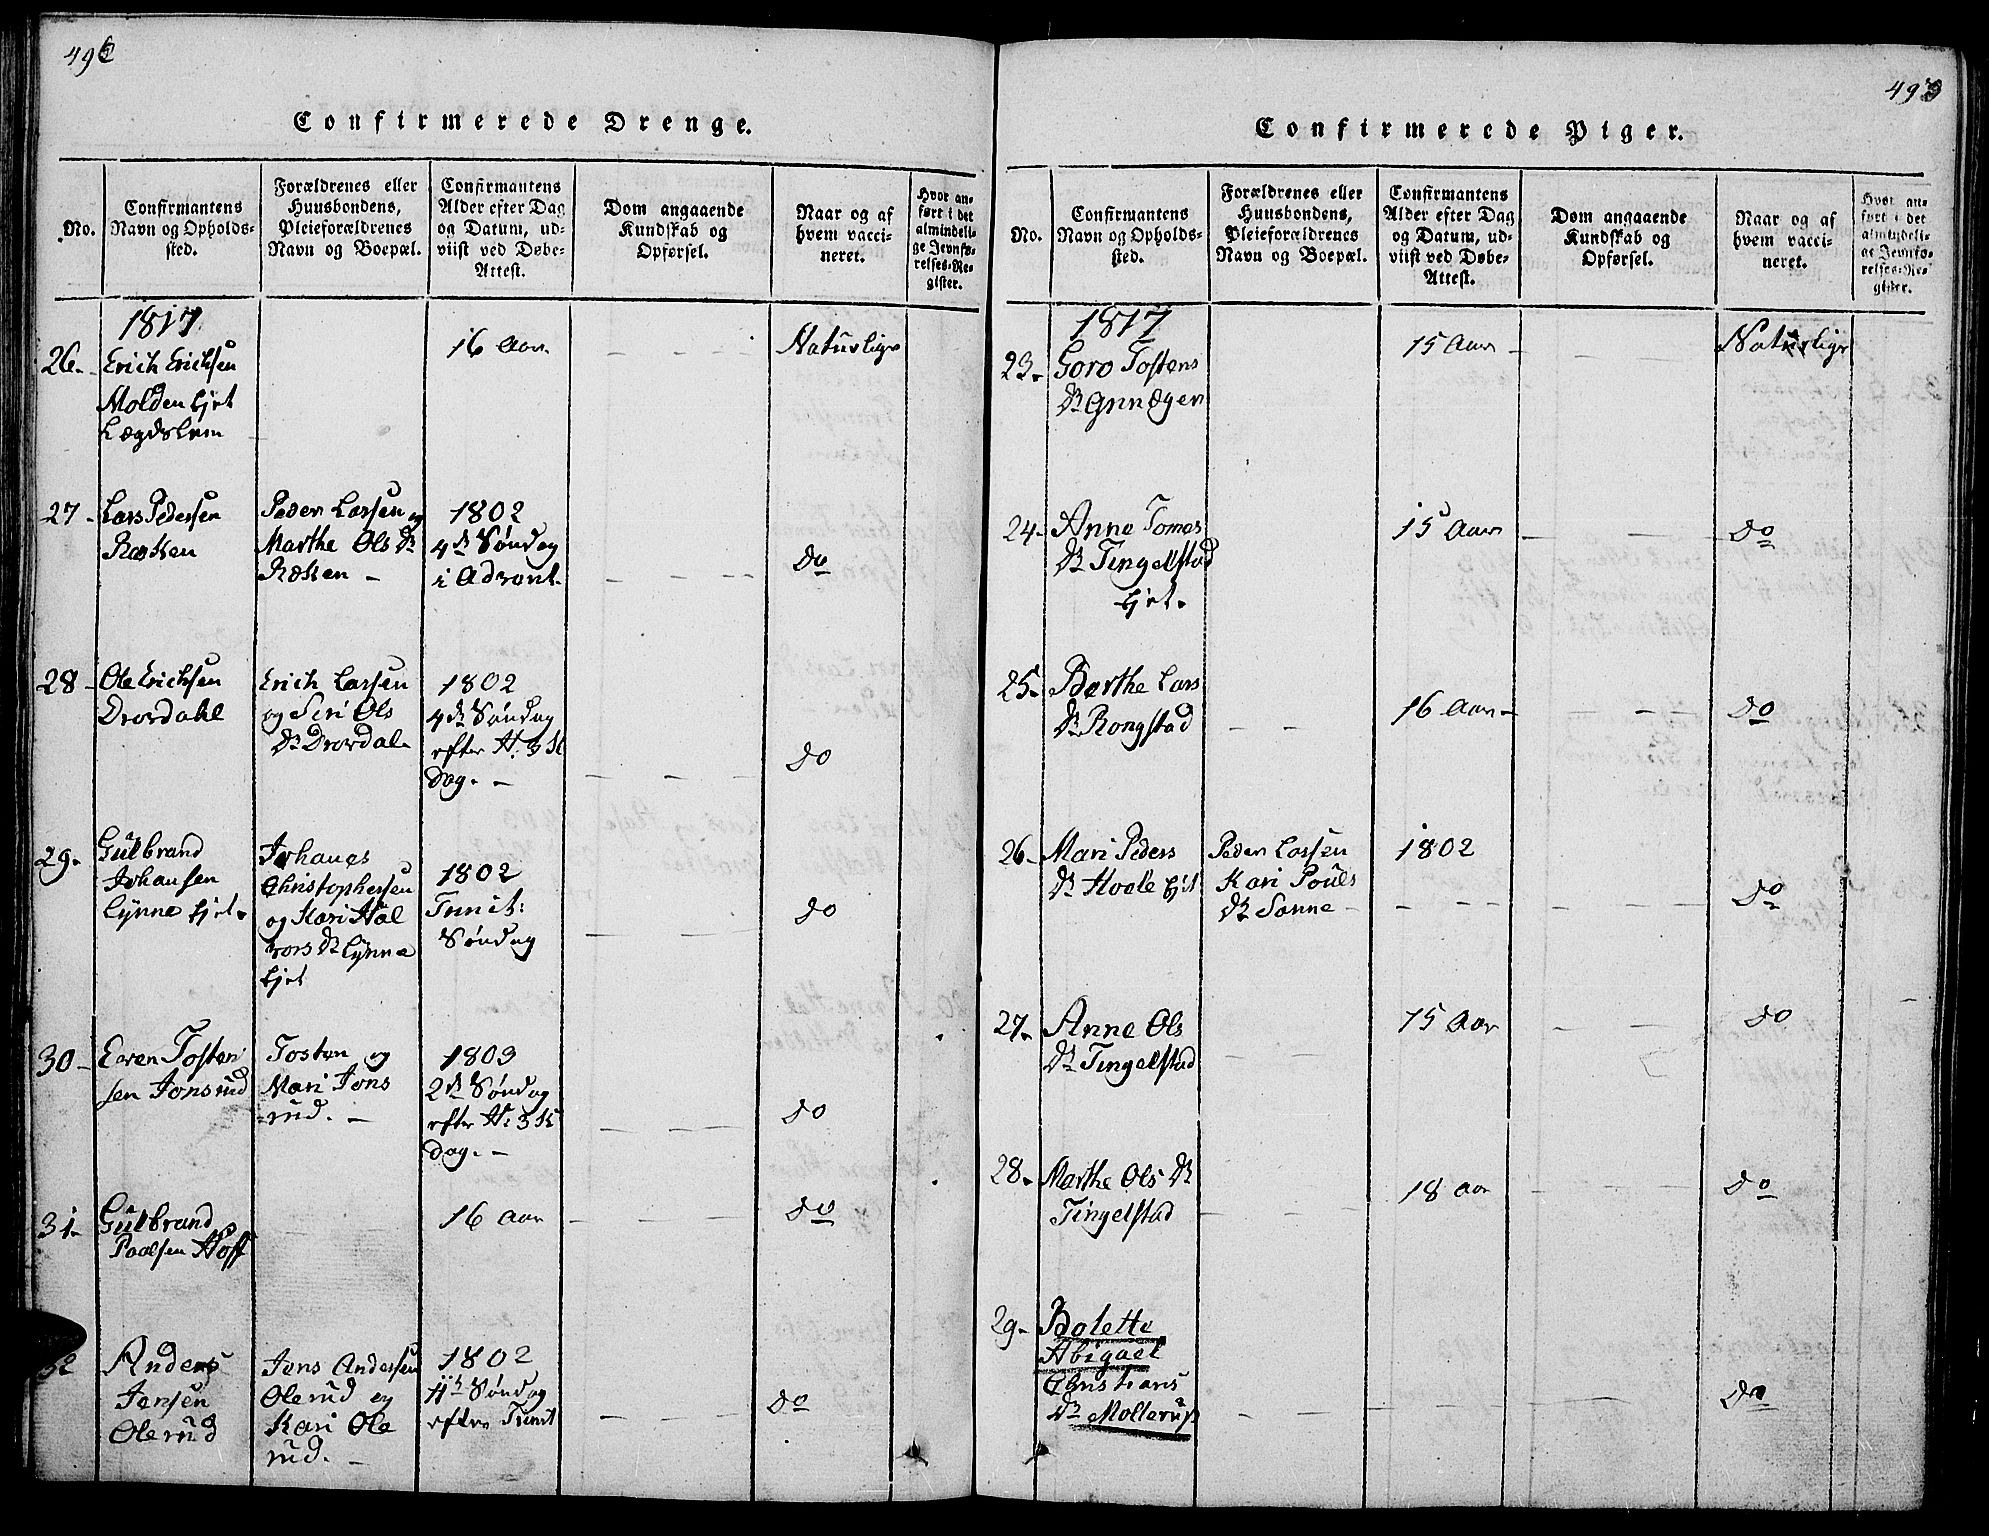 Confirmerede Drenge.
No.
Confirmantens
Navn og Opholds-
sted.
Forældrenes eller
Huusbondens,
Pleieforældrenes
Navn og Boepæl.
Confirmantens
Alder efter Dag
og Datum, ud-
viist ved Døbe-
Attest.
Dom angaaende
Kundskab og
Opførsel.
Naar og af
hvem vacci-
neret.
Hvor an-
ført i det
almindeli-
ge Jevnfø-
relses-Re-
gister.
1817
26.
Erich Erichsen
Molden Ejet
Lægdslem
16 Aar
Naturlige
27
Lars Pedersen
Peder Larsen og
Marthe Ols Dr
1802
4de Søndag
i Advent
do
28
Ole Erichsen
Drovdahl
Erich Larsen
og Siri Ols
Dr Drovdal
1802
4de Søndag
efter H. 3 K
Dag.
do
29.
Gulbrand
Johansen
Lynne Ejet.
Johanes
Christophersen
og Kari Hal
vors Dr Lynne
Ejet
1802
Trinit:
Søndag
do
30
Even Tosten
sen Jonsrud
Tosten og
Mari Jons
rud.
1803
2de Søndag
efter H. 3 K
Dag.
do
31.
Gulbrand
Paalsen Hoff
16 Aar
do
32
Anders
Jensen
Olerud
Jens Andersen
Olerud og
Kari Ole
rud.
1802
Søndag
efter Trinit
do
Confirmerede Piger.
No.
Confirmantens
Navn og Opholds-
sted.
Forældrenes eller
Huusbondens,
Pleieforældrenes
Navn og Boepæl.
Confirmantens
Alder efter Dag
og Datum, ud-
viist ved Døbe-
Attest.
Dom angaaende
Kundskab og
Opførsel.
Naar og af
hvem vacci-
neret.
Hvor an-
ført i det
almindeli-
ge Jevnfø-
relses-Re-
gister.
1817
23.
Goro Tostens
Dr
15 Aar
Naturlige
24.
Anne Tomes
Dr Tingelstad
Ejet.
15 Aar
do
25.
Berthe Lars
Dr Rongstad
16 Aar
do
26
Mari Peders
Dr Hvale Ejet
Peder Larsen
Kari Pouls
Dr Sanne
1802
do
27.
Anne Ols
Dr Tingelstad
15 Aar
do
28.
Marthe Ols Dr
Tingelstad
18 Aar
do
29.
Bolette
Abigael
Christians
Dr Mollerup
do